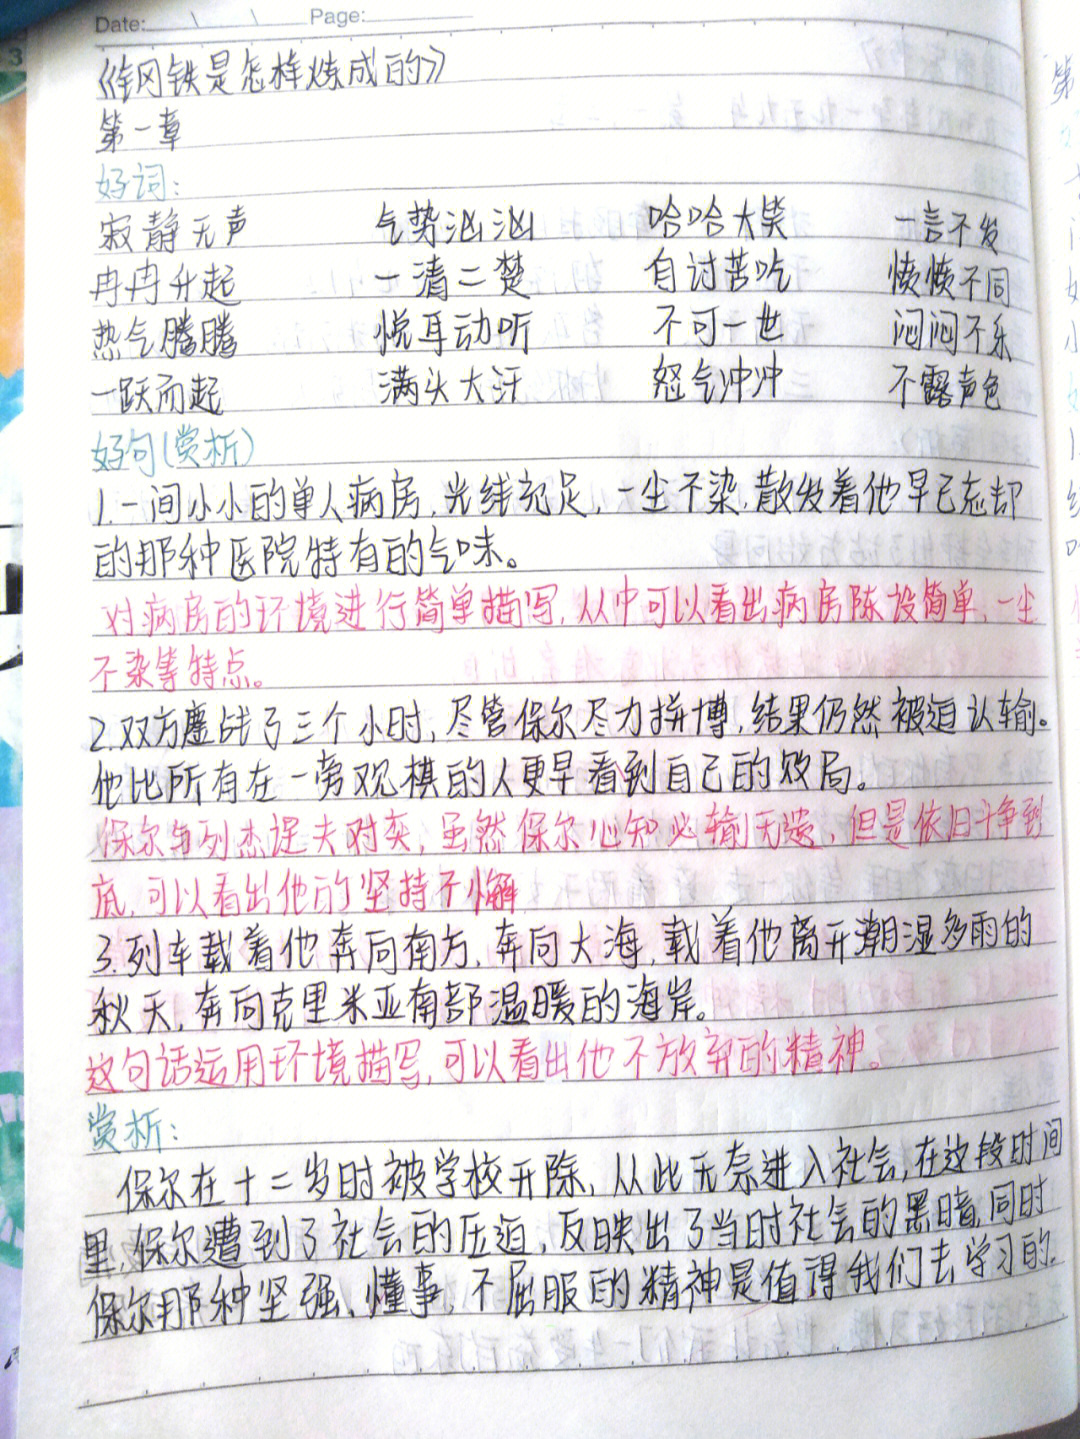 Date: Page:
《钢铁是怎样炼成的》
第一章
好词:
寂静无声 气势汹汹 哈哈大笑 一言不发
冉冉升起 一清二楚 自讨苦吃 愤愤不同
热气腾腾 悦耳动听 不可一世 闷闷不乐
一跃而起 满头大汗 怒气冲冲 不露声色
好句(赏析)
1.一间小小的单人病房,光线充足,一尘不染,散发着他早已忘却
的那种医院特有的气味。
对病房的环境进行简单描写,从中可以看出病房陈设简单,一尘
不染等特点。
2.双方鏖战了三个小时,尽管保尔尽力拼博,结果仍然被迫认输。
他比所有在一旁观棋的人更早看到自己的败局。
保尔与列杰涅夫对奕,虽然保尔心知必输无遗,但是依旧斗争到
底,可以看出他的坚持不懈
3.列车载着他奔向南方,奔向大海,载着他离开潮湿多雨的
秋天,奔向克里米亚南部温暖的海岸。
这句话运用环境描写,可以看出他不放弃的精神。
赏析:
保尔在十二岁时被学校开除,从此无奈进入社会,在这段时间
里,保尔遭到了社会的压迫,反映出了当时社会的黑暗,同时
保尔那种坚强、懂事,不屈服的精神是值得我们去学习的.
3
第